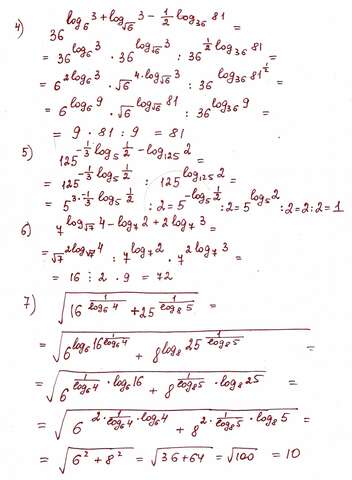 4) 36^(log_6 3 + log_√6 3 − ½ log_36 81) =
= 36^(log_6 3) · 36^(log_√6 3) : 36^(½ log_36 81) =
= 6^(2 log_6 3) · √6^(4·log_√6 3) : 36^(log_36 81^½) =
= 6^(log_6 9) · √6^(log_√6 81) : 36^(log_36 9) =
= 9 · 81 : 9 = 81
5) 125^(−⅓ log_5 ½ − log_125 2) =
= 125^(−⅓ log_5 ½) : 125^(log_125 2) =
= 5^(3·−⅓ log_5 ½) : 2 = 5^(−log_5 ½) : 2 = 5^(log_5 2) : 2 = 2 : 2 = 1
6) 7^(log_√7 4 − log_7 2 + 2 log_7 3) =
= √7^(2 log_√7 4) : 7^(log_7 2) · 7^(2 log_7 3) =
= 16 : 2 · 9 = 72
7) √(16^(1/log_6 4) + 25^(1/log_8 5)) =
= √(6^(log_6 16^(1/log_6 4)) + 8^(log_8 25^(1/log_8 5))) =
= √(6^(1/log_6 4 · log_6 16) + 8^(1/log_8 5 · log_8 25)) =
= √(6^(2 · 1/log_6 4 · log_6 4) + 8^(2 · 1/log_8 5 · log_8 5)) =
= √(6² + 8²) = √(36+64) = √100 = 10